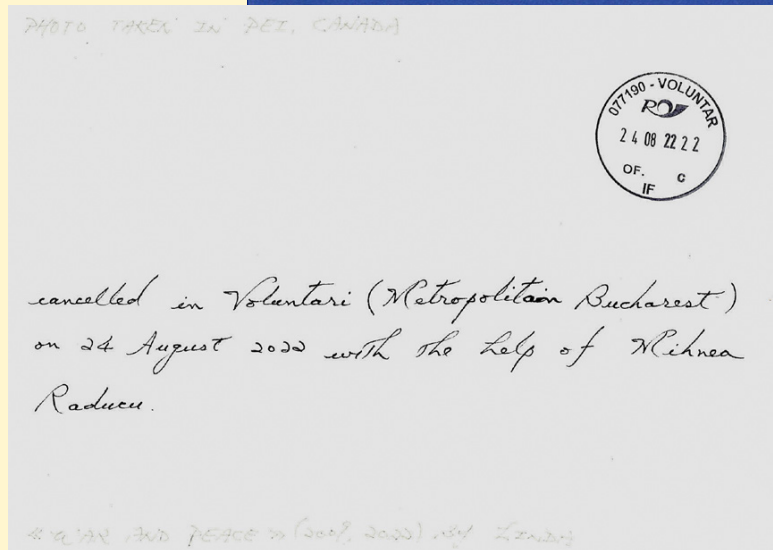 PHOTO TAKEN IN PEI, CANADA
077190 - VOLUNTAR
24 08 22 22
OF. C
IF
cancelled in Voluntari (Metropolitain Bucharest)
on 24 August 2022 with the help of Mihnea
Raducu.
"WAR AND PEACE" (2009, 2022) BY LINDA